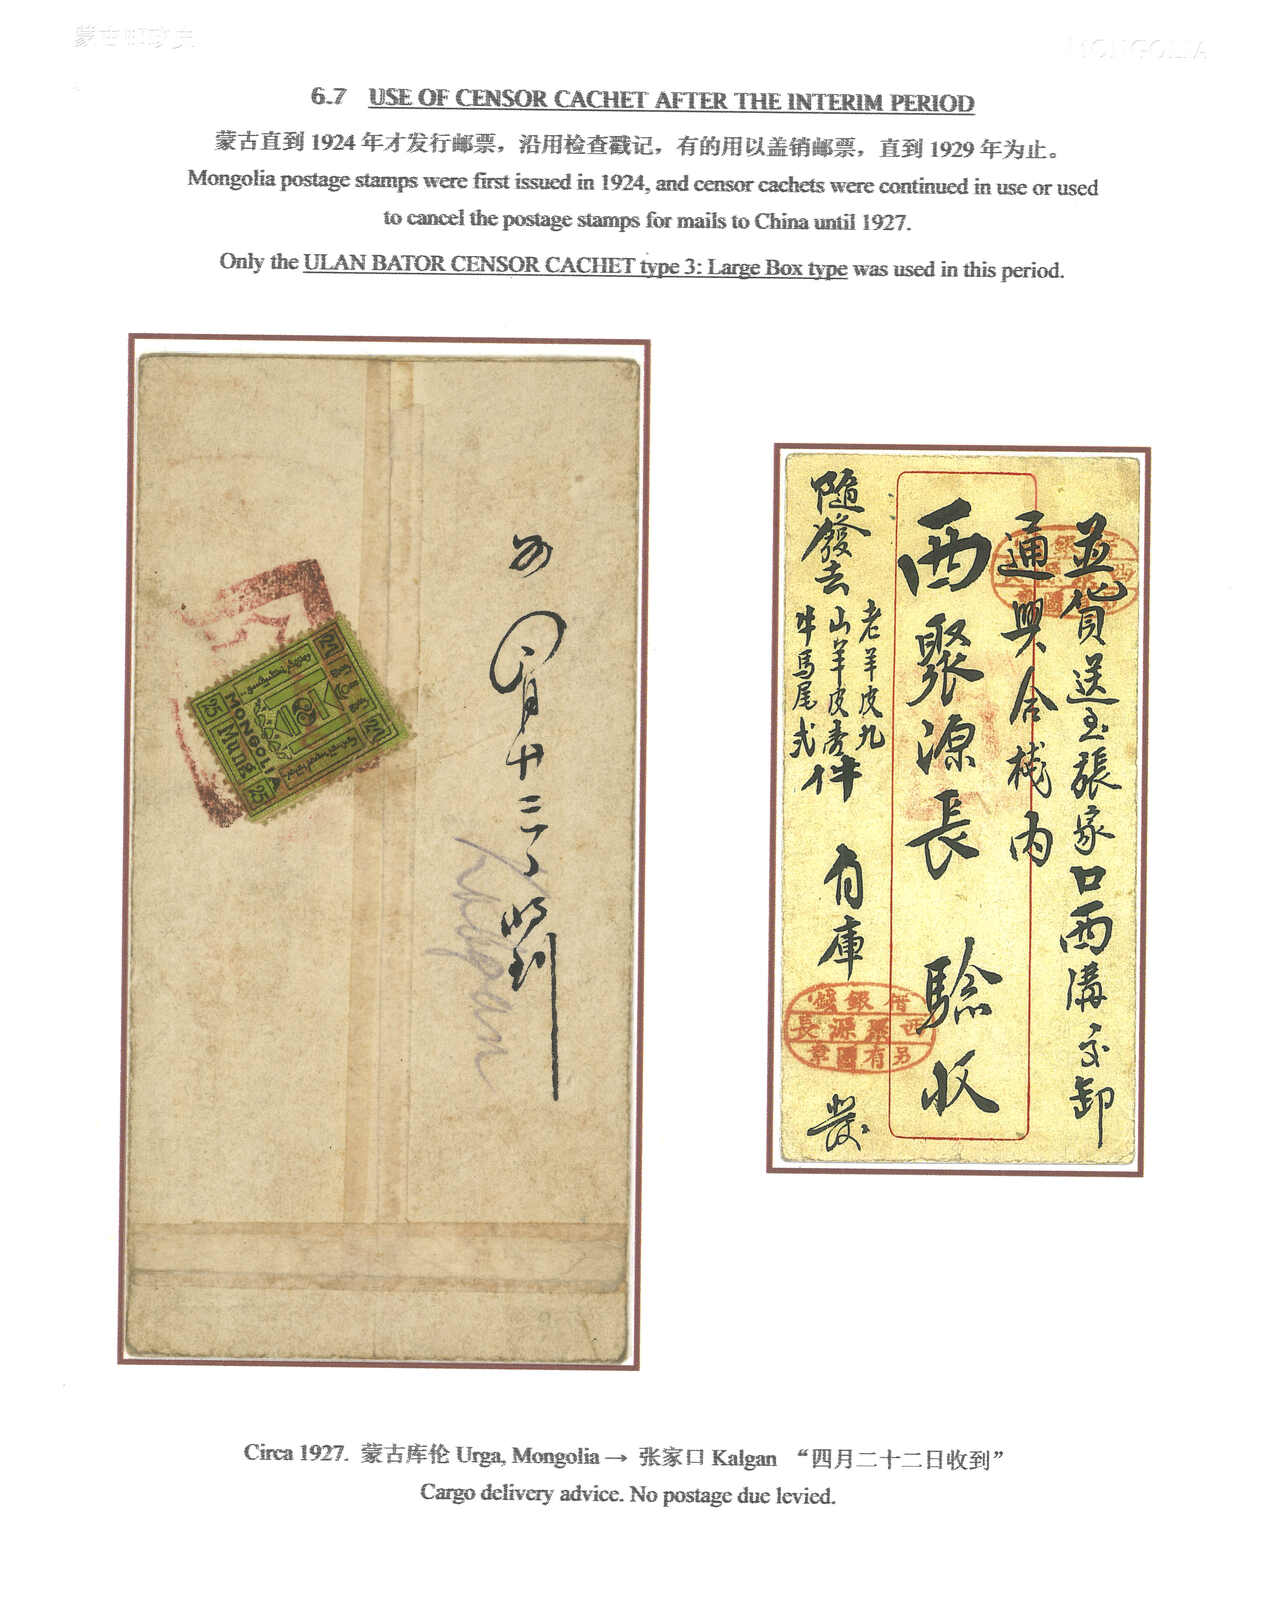 蒙古邮政史
MONGOLIA
6.7 USE OF CENSOR CACHET AFTER THE INTERIM PERIOD
蒙古直到 1924 年才发行邮票，沿用检查戳记，有的用以盖销邮票，直到 1929 年为止。
Mongolia postage stamps were first issued in 1924, and censor cachets were continued in use or used
to cancel the postage stamps for mails to China until 1927.
Only the ULAN BATOR CENSOR CACHET type 3: Large Box type was used in this period.
MONGOLIA
25 Mung 25
月十二
收到
Kalgan
並貨送至張家口西溝交卸
通興合棧内
西聚源長 驗收
隨發去
老羊皮九
山羊皮壱件
牛馬尾弍
自庫
發
西聚源長
另有圖章
Circa 1927. 蒙古库伦 Urga, Mongolia → 张家口 Kalgan “四月二十二日收到”
Cargo delivery advice. No postage due levied.